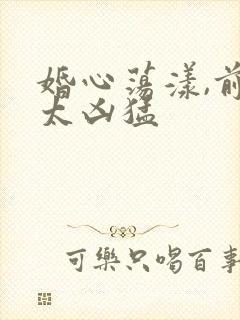 婚心荡漾,前
太凶猛
可樂只喝百事